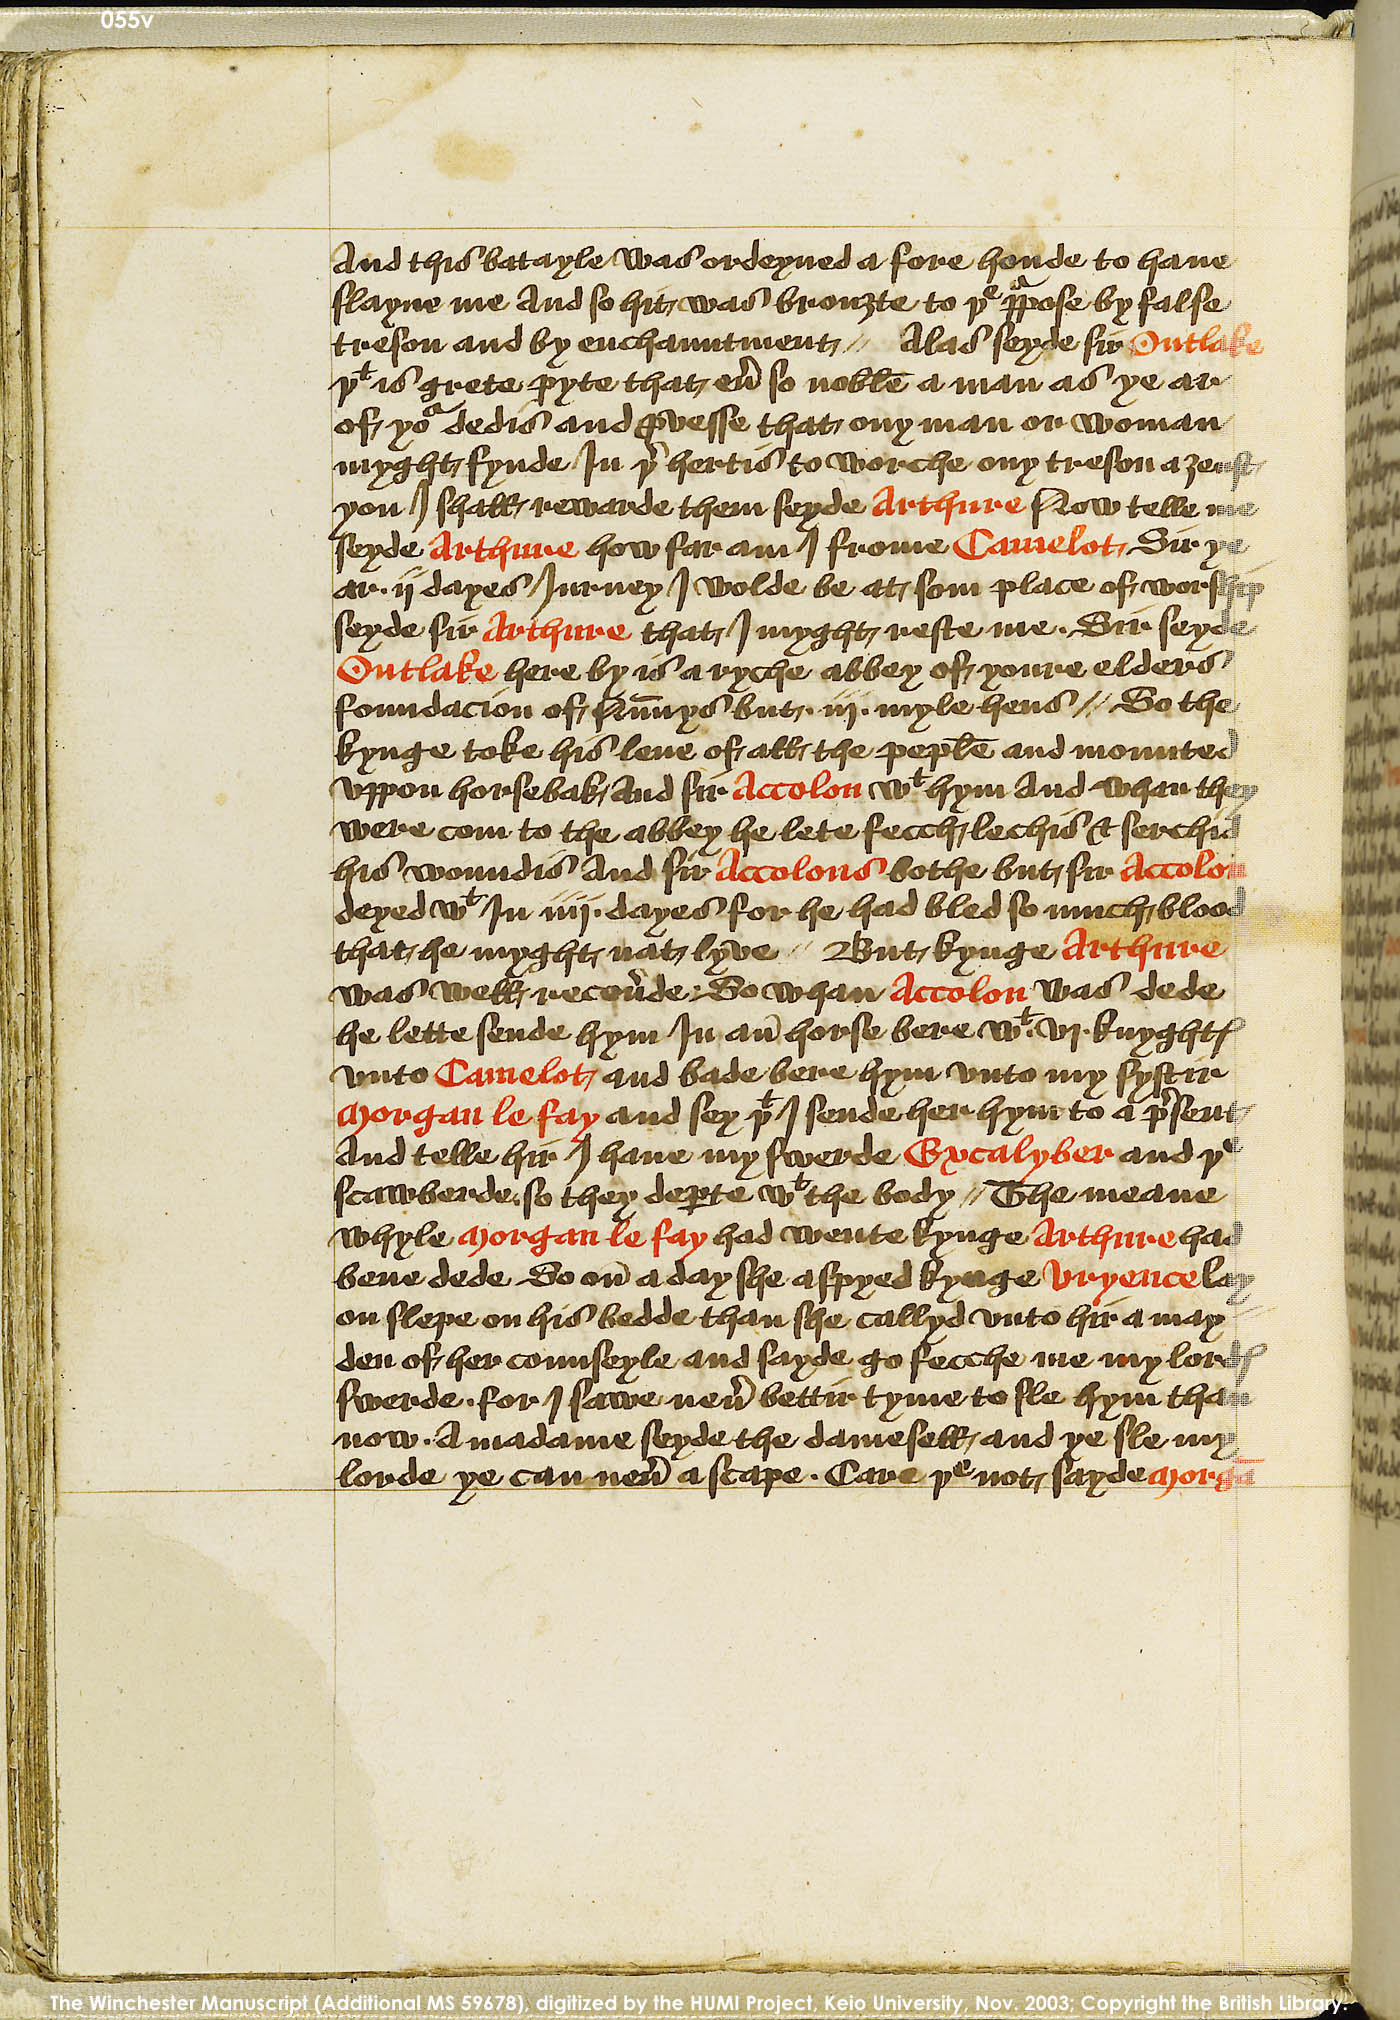 055v
And this batayle was ordeyned a fore honde to haue
slayne me And so hit was brouȝte to þe ꝑpose by false
treson and by enchauntment // Alas seyde sir Outlake
þt is grete pyte that eũ so noble a man as ye ar
of yor dedis and ꝓvesse that ony man or woman
myght fynde In þr hertis to worche ony treson aȝenst
you I shall rewarde them seyde Arthure Now telle me
seyde Arthure how far am I frome Camelot Sir ye
ar · ij dayes Iurney I wolde be at som place of worship
seyde sir Arthure that I myght reste me · Sir seyde
Outlake here by is a ryche abbey of youre elders
foundacion of Nũnys but · iij · myle hens // So the
kynge toke his leue of all the peple and mounted
vppon horsebak And sir Accolon wt hym And whan they
were com to the abbey he lete fecch lechis & serchid
his woundis And sir Accolons bothe but sir Accolon
deyed wt In iiij · dayes for he had bled so much blood
that he myght nat lyve // But kynge Arthure
was well recoũde · So whan Accolon was dede
he lette sende hym In an horse bere wt · vj · knyghtꝭ
vnto Camelot and bade bere hym vnto my systir
Morgan le fay and sey þt I sende her hym to a p̃sent
And telle hir I haue my swerde Excalyber and þe
scawberde · so they deꝑte wt the body // The meane
whyle Morgan le fay had wente kynge Arthure had
bene dede So on a day she aspyed kynge Vryence lay
on slepe on his bedde than she callyd vnto hir a may //
den of her counseyle and sayde go fecche me my lordꝭ
swerde · for I sawe neũ bettir tyme to sle hym than
now · A madame seyde the damesell and ye sle my
lorde ye can neũ ascape · Care þe not sayde Morgã
The Winchester Manuscript (Additional MS 59678), digitized by the HUMI Project, Keio University, Nov. 2003; Copyright the British Library.